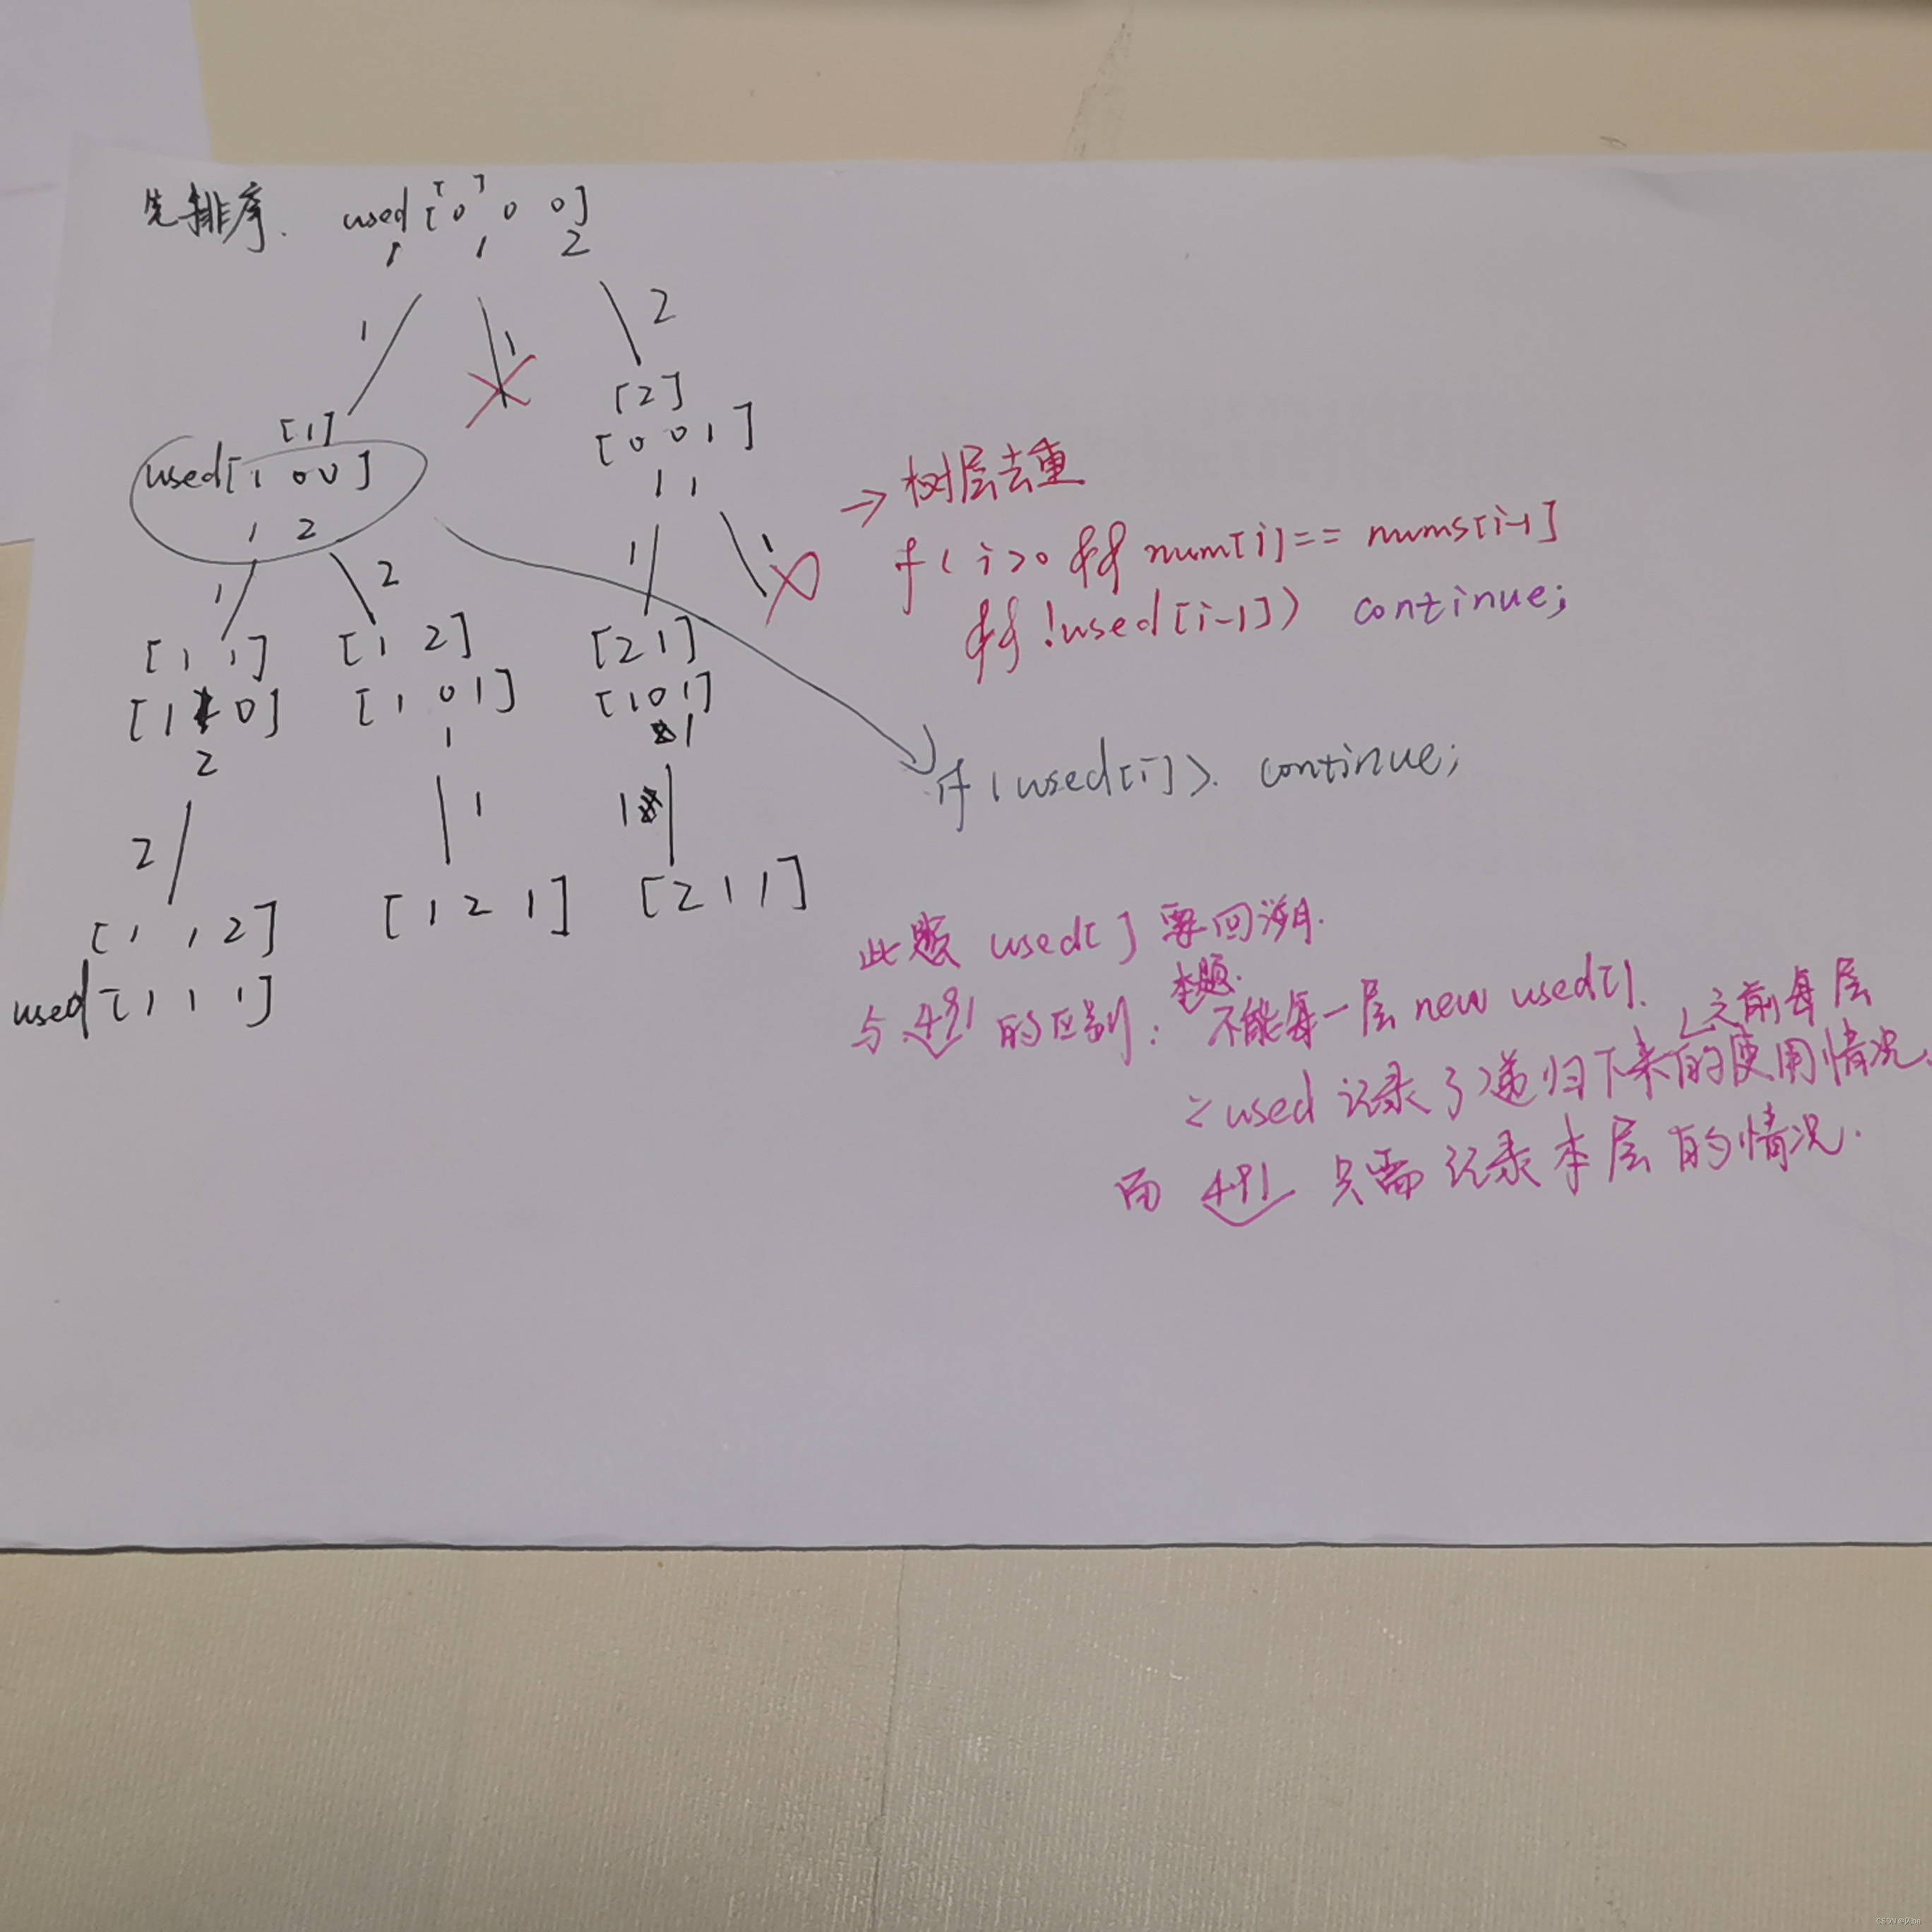 [ ]
先排序. used [0 0 0]
1 1 2
1 1 2
[1]
used[1 0 0]
1 2
[2]
[0 0 1]
1 1
1 2
1 1
[1 1]
[1 1 0]
2
[1 2]
[1 0 1]
1
[2 1]
[1 0 1]
1
2
1
1
[1 1 2]
used [1 1 1]
[1 2 1]
[2 1 1]
→ 树层去重
if ( i>0 && num[i]== nums[i-1]
&& !used[i-1]) continue;
if (used[i]). continue;
此题 used[] 要回溯.
本题.
与 491 的区别: 不能每一层 new used[].
之前每层
∵ used 记录了递归下来的使用情况.
而 491 只需记录本层的情况.